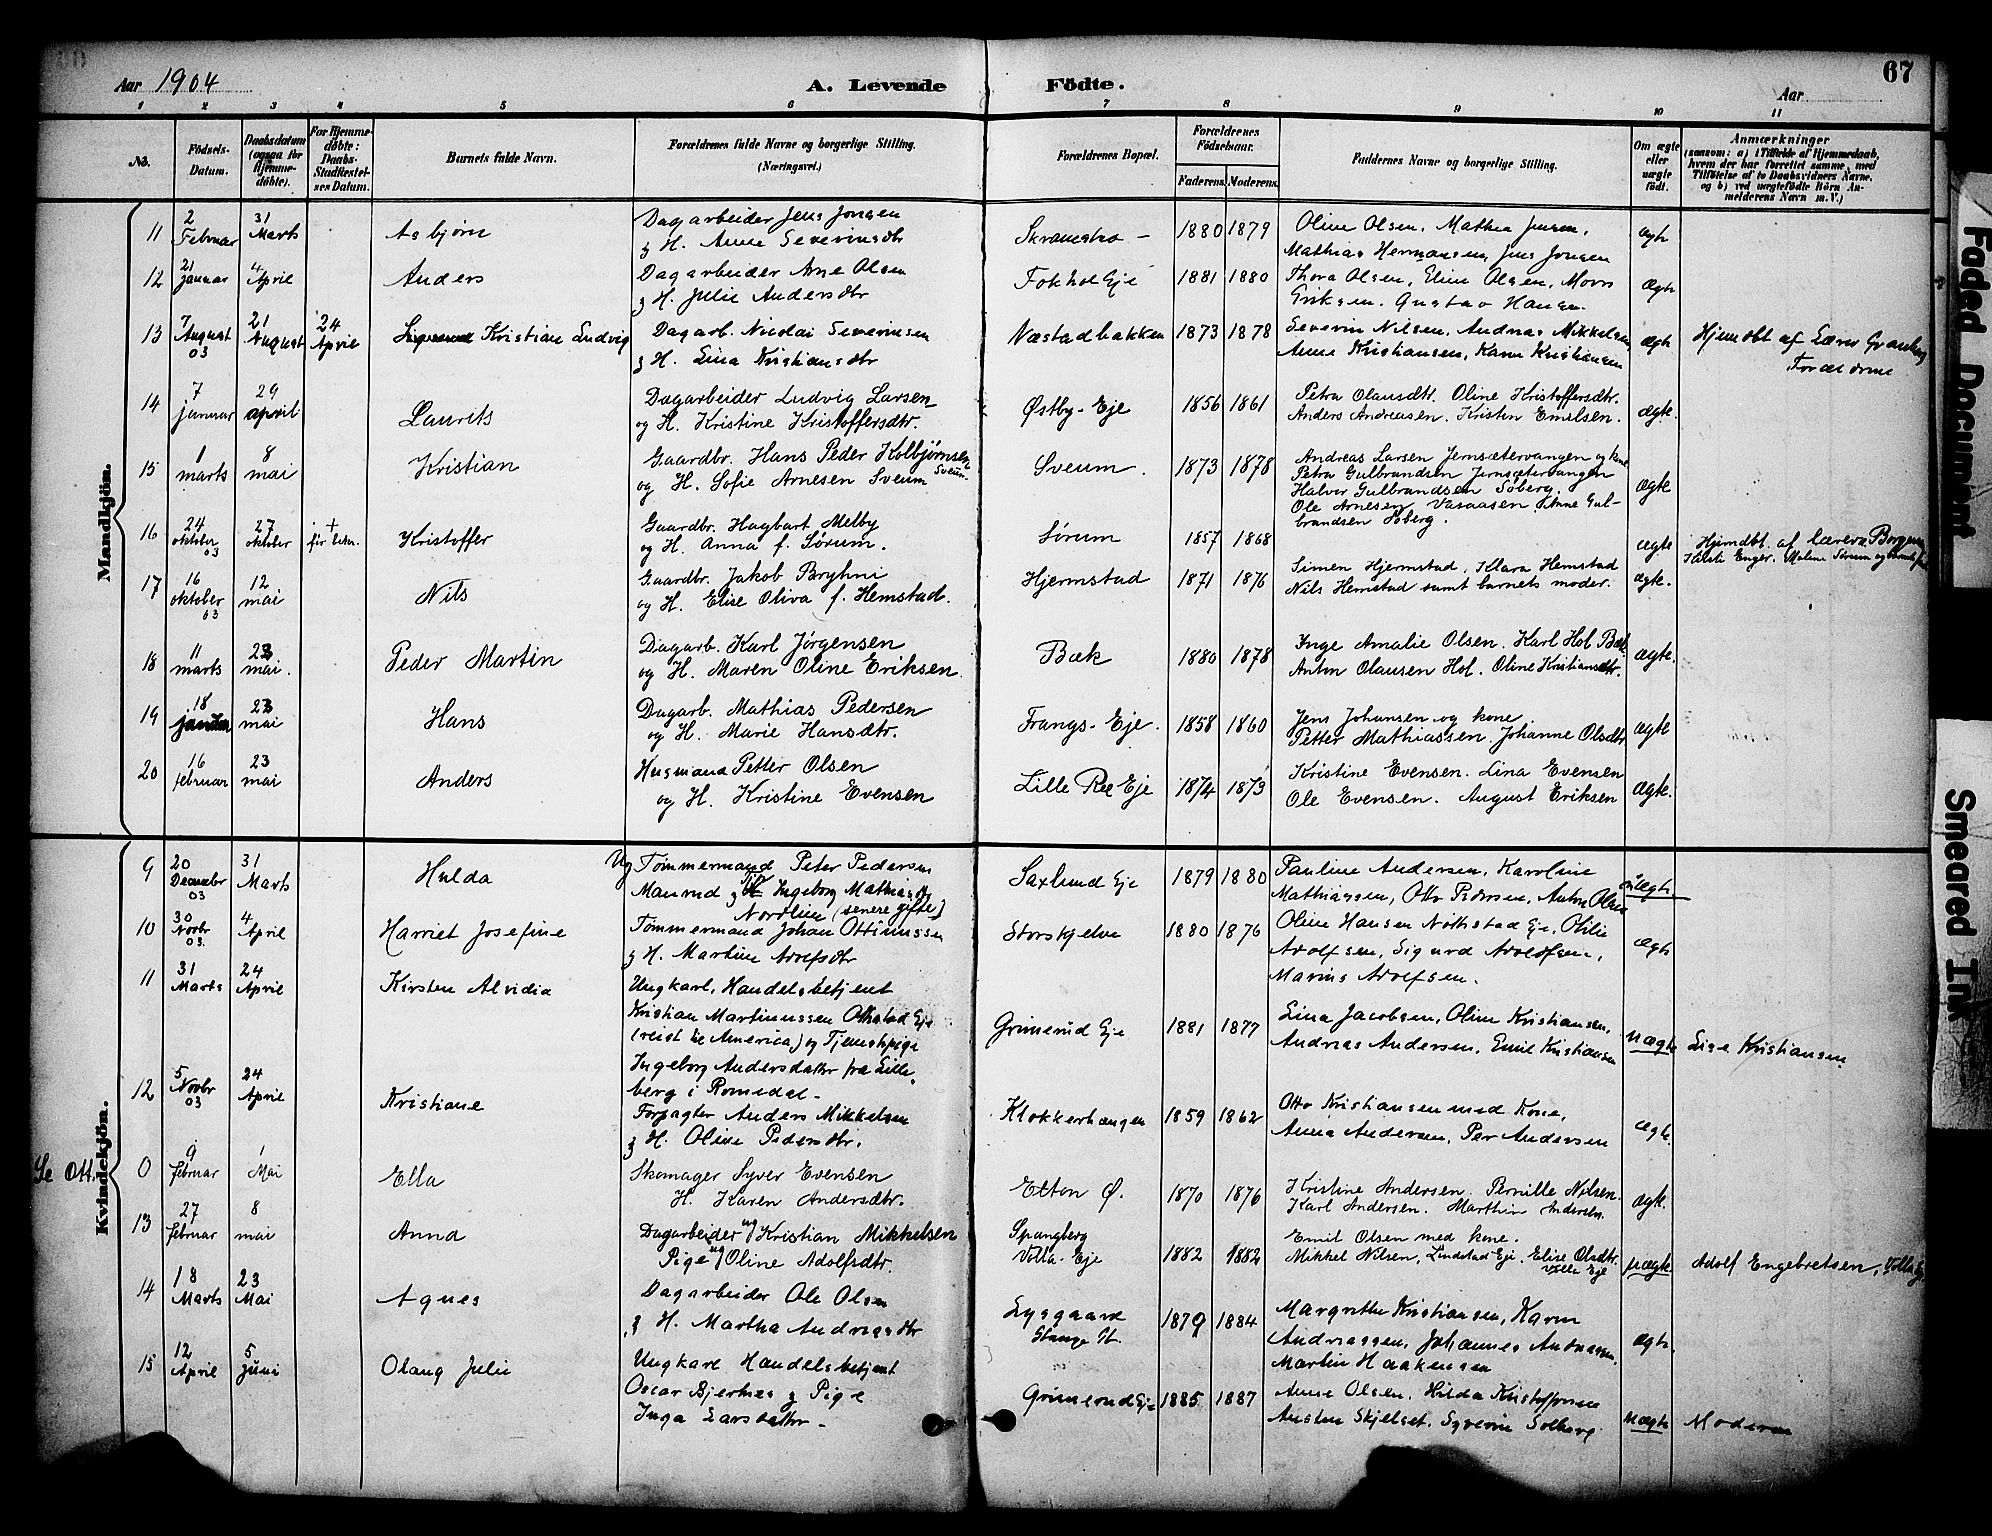 67
Aar 1904
A. Levende Födte.
Aar
1 2 3 4 5 6 7 8 9 10 11
No.
Födsels-Datum.
Daabsdatum (ogsaa for Hjemme-döbte).
For Hjemme-döbte: Daabs-Stadfæstel-ses Datum.
Barnets fulde Navn.
Forældrenes fulde Navne og borgerlige Stilling. (Næringsvei.)
Forældrenes Bopæl.
Forældrenes Födselsaar.
Faderens. Moderens.
Faddernes Navne og borgerlige Stilling.
Om ægte eller uægte född.
Anmærkninger
(saasom: a) i Tilfælde af Hjemmedaab,
hvem der har forrettet samme, med
Tilföielse af to Daabsvidners Navne,
og b) ved uægtefödte Börn An-
melderens Navn m. V.)
Mandkjön.
11 2 Februar 31 Marts Asbjørn
Dagarbeider Jens Jonsen
& H. Anne Severinsdtr
1880 1879
Oline Olsen, Mathea Jensen,
Mathias Hermansen, Jens Jonsen
ægte
12 21 Januar 4 April Anders
Dagarbeider Arne Olsen
& H. Julie Andersdtr
Fokhol Eje 1881 1880
Thora Olsen, Eline Olsen,
Eriksen. Gustav Hansen
ægte
13 7 August 03 21 August 24 April Kristian Ludvig
Dagarb. Nicolai Severinsen
& H. Lina Kristiansdtr
Næstadbakken 1873 1878
Severin Nilsen, Andreas Mikkelsen,
Anne Kristiansen, Karen Kristiansen
ægte
Hjemdbt af Lærer
Forældrene
14 7 januar 29 april Laurits
Dagarbeider Ludvig Larsen
og H. Kristine Kristoffersdtr.
Østby-Eje 1856 1861
Petra Olausdtr. Oline Kristoffersdtr.
Anders Andreasen. Kristen Emilsen.
ægte.
15 1 marts 8 mai Kristian
Gaardbr. Hans Peder Kolbjørnsen Sveum.
og H. Sofie Arnesen Sveum
Sveum. 1873 1878
Andreas Larsen Jernsætervangen og kone
Petra Gulbrandsen Jernsætervangen
Halvor Gulbrandsen Soberg.
Ole Arnesen Vasaasen Stine Gul-
brandsen Soberg.
ægte
16 24 oktober 03 27 oktober + før bekr. Kristoffer
Gaardbr. Hagbart Melby
og H. Anna f. Sørum.
Sørum 1857 1868
ægte
Hjemdbt. af lærer Borgen
Enger. Malene Sørum og
17 16 oktober 03 12 mai Nils
Gaardbr. Jakob Bryhni
og H. Elise Oliva f. Hemstad.
Hjermstad 1871 1876
Simen Hjermstad, Klara Hemstad
Nils Hemstad samt barnets moder.
ægte.
18 11 marts 23 mai. Peder Martin
Dagarb. Karl Jørgensen
og H. Maren Oline Eriksen
Bæk 1880 1878
Inge Amalie Olsen. Karl Hol Bæk
Anton Olausen Hol. Oline Kristiansdtr.
ægte.
19 18 januar 23 mai Hans
Dagarb. Mathias Pedersen
og H. Marie Hansdtr.
Frangs-Eje. 1858 1860
Jens Johansen og kone
Petter Mathiassen. Johanne Olsdtr
ægte
20 16 februar 23 mai Anders
Husmand Petter Olsen
og H. Kristine Evensen
Lille Ree Eje 1874 1873
Kristine Evensen. Lina Evensen
Ole Evensen. August Eriksen
ægte.
Kvindekjön.
9 20 Decembr 03 31 Marts Hulda
Ug Tømmermand Peter Pedersen
& Ingeborg
Nordlien (senere gifte)
Saxlund Eje 1879 1880
Pauline Andersen, Karoline
Mathiassen, Otto Pedersen, Anton Olsen
uægte
10 30 Novbr 03. 4 April Harriet Josefine
Tømmermand Johan Ottinussen
& H. Martine Adolfsdtr
Storskjelve 1880 1876
Oline Hansen Nøthstad Eje, Otilie
Adolfsen, Sigurd Adolfsen,
Marius Adolfsen.
ægte
11 31 Marts 24 April Kirsten Alvidia
Ungkarl, Handelsbetjent
Kristian Martinussen Ottestad Eje
(reist til America) og Tjenestepige
Ingeborg Andersdatter fra Lille-
berg i Romedal-
Grimerud Eje 1881 1877
Lina Jacobsen, Oline Kristiansen,
Andreas Andersen, Emil Kristiansen
uægte Lise Kristiansen
12 5 Novbr 03 24 April Kristiane
Forpagter Anders Mikkelsen
& H. Oline Pedersdtr.
Klokkerhaugen 1859 1862
Otto Kristiansen med Kone,
Anna Andersen, Per Andersen
ægte.
Se Ott.
0 9 februar 1 Mai Ella
Skomager Syver Evensen
H. Karen Andersdtr.
Etton Ø. 1870 1876
Kristine Andersen. Pernille Nilsen.
Karl Andersen. Marthin Andersen.
ægte.
13 27 februar 8 mai Anna
Dagarbeider ug Kristian Mikkelsen
Pige ug Oline Adolfsdtr.
Spangberg
Volla-Eje 1882 1882
Emil Olsen med kone.
Mikkel Nilsen, Lindstad Eje. Elise Olsdtr.
Volla Eje
uægte. Adolf Engebretsen, Volla Eje
14 18 Marts 23 Mai Agnes
Dagarbeider Ole Olsen
& H. Martha Andreasdtr
Lysgaard
Stange St. 1879 1884
Margrethe Kristiansen, Karen
Andreassen, Johannes Andreassen,
Martin Haakensen
ægte.
15 12 April 5 Juni Olaug Julie
Ungkarl Handelsbetjent
Oscar Bjerknes & Pige
Inga Larsdatter-
Grimerud Eje 1885 1887
Anne Olsen, Hilda Kristoffersen
Austen Skjelset, Syverin Solberg
uægte Moderen
Faded Document
Smeared Ink